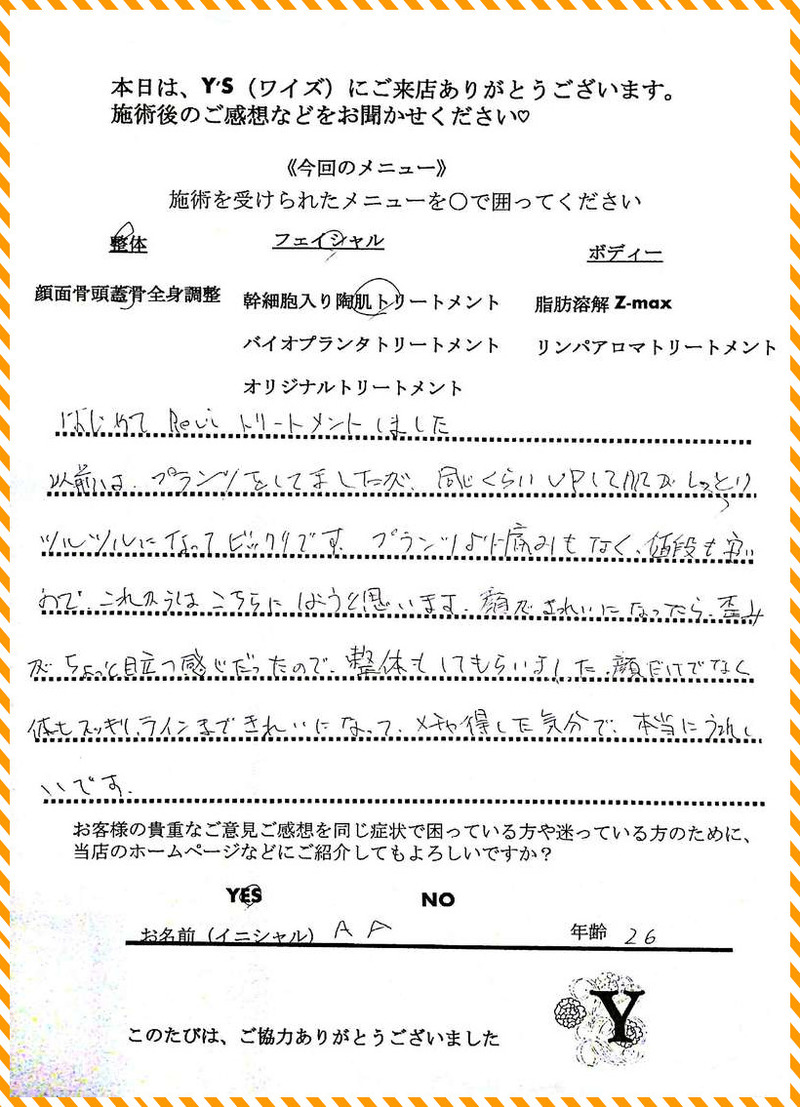 本日は、Y'S（ワイズ）にご来店ありがとうございます。
施術後のご感想などをお聞かせください♡
《今回のメニュー》
施術を受けられたメニューを〇で囲ってください
整体 フェイシャル ボディー
顔面骨頭蓋骨全身調整 幹細胞入り陶肌トリートメント 脂肪溶解 Z-max
バイオプランタトリートメント リンパアロマトリートメント
オリジナルトリートメント
はじめて Revi トリートメントしました
以前は、プランツをしてましたが、同じくらいUPして肌がしっとり
ツルツルになってビックリです。プランツより痛みもなく、値段も安い
ので、これからは こちらにしようと思います。顔がきれいになったら、歪み
がちょっと目立つ感じだったので、整体もしてもらいました。顔だけでなく
体もスッキリ、ラインまできれいになって、メチャ得した気分で、本当にうれし
いです。
お客様の貴重なご意見ご感想を同じ症状で困っている方や迷っている方のために、
当店のホームページなどにご紹介してもよろしいですか？
YES NO
お名前（イニシャル） A A 年齢 26
Y
このたびは、ご協力ありがとうございました